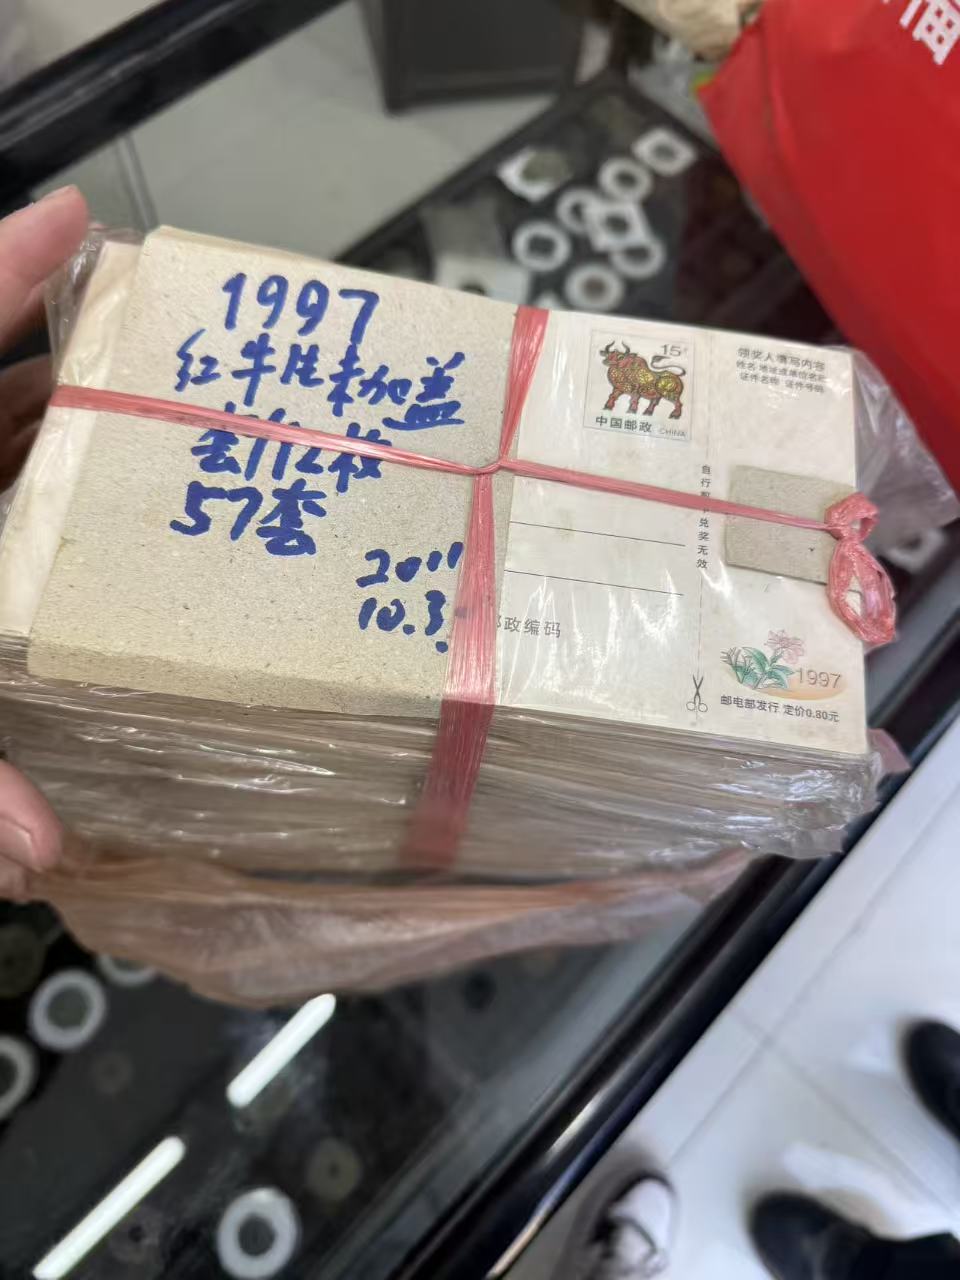 1997
红牛片未加盖
套/12枚
57套
2011
10.3.
15分
中国邮政 CHINA
领奖人填写内容
姓名 地址或单位名称
证件名称 证件号码
自行剪下兑奖无效
邮政编码
1997
邮电部发行 定价0.80元